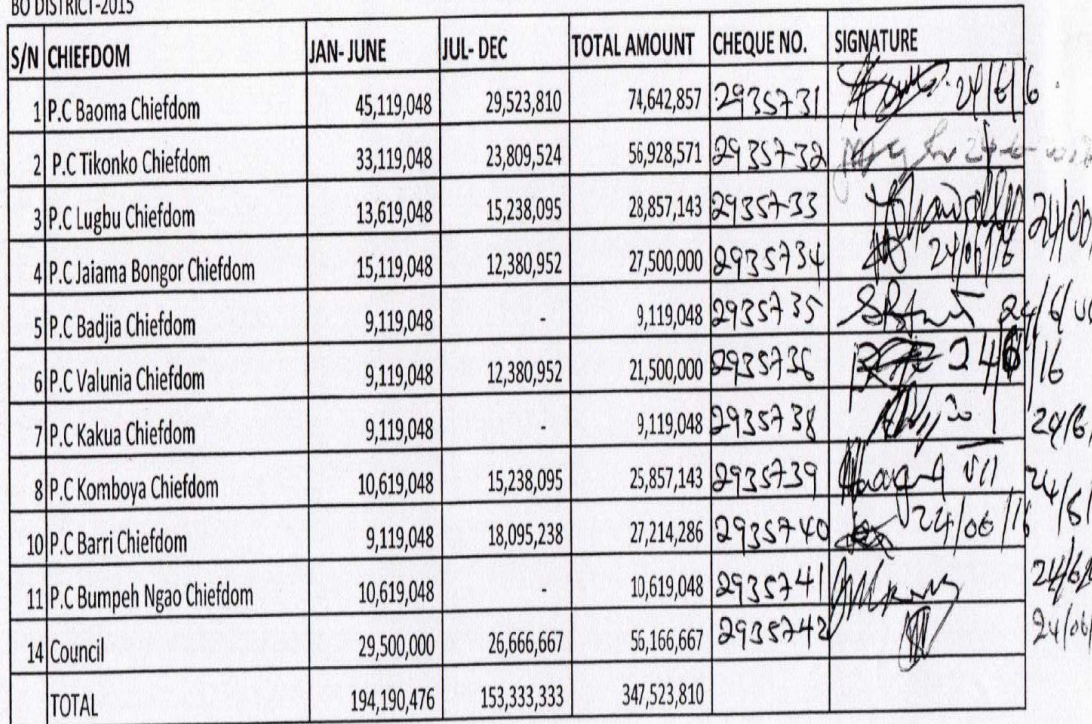 BO DISTRICT-2015
S/N CHIEFDOM JAN- JUNE JUL- DEC TOTAL AMOUNT CHEQUE NO. SIGNATURE
1 P.C Baoma Chiefdom 45,119,048 29,523,810 74,642,857 2935731 24/6/16.
2 P.C Tikonko Chiefdom 33,119,048 23,809,524 56,928,571 2935732
3 P.C Lugbu Chiefdom 13,619,048 15,238,095 28,857,143 2935733 24/06
4 P.C Jaiama Bongor Chiefdom 15,119,048 12,380,952 27,500,000 2935734 24/06/16
5 P.C Badjia Chiefdom 9,119,048 - 9,119,048 2935735 24/6/16
6 P.C Valunia Chiefdom 9,119,048 12,380,952 21,500,000 2935736 24 6/16
7 P.C Kakua Chiefdom 9,119,048 - 9,119,048 2935738 24/6/
8 P.C Komboya Chiefdom 10,619,048 15,238,095 25,857,143 2935739 VII 24/6/
10 P.C Barri Chiefdom 9,119,048 18,095,238 27,214,286 2935740 24/06/16
11 P.C Bumpeh Ngao Chiefdom 10,619,048 - 10,619,048 2935741 24/6
14 Council 29,500,000 26,666,667 56,166,667 2935742 24/06/
TOTAL 194,190,476 153,333,333 347,523,810